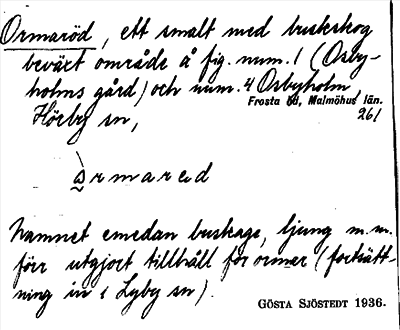 Ormaröd, ett smalt med buskskog
beväxt område å fig. num. 1 (Osby-
holms gård) och num. 4 Osbyholm,
Frosta hd, Malmöhus län.
Hörby sn,
261
Namnet emedan buskage, ljung m.m.
förr utgjort tillhåll för ormar (fortsätt-
ning in i Lyby sn).
GÖSTA SJÖSTEDT 1936.